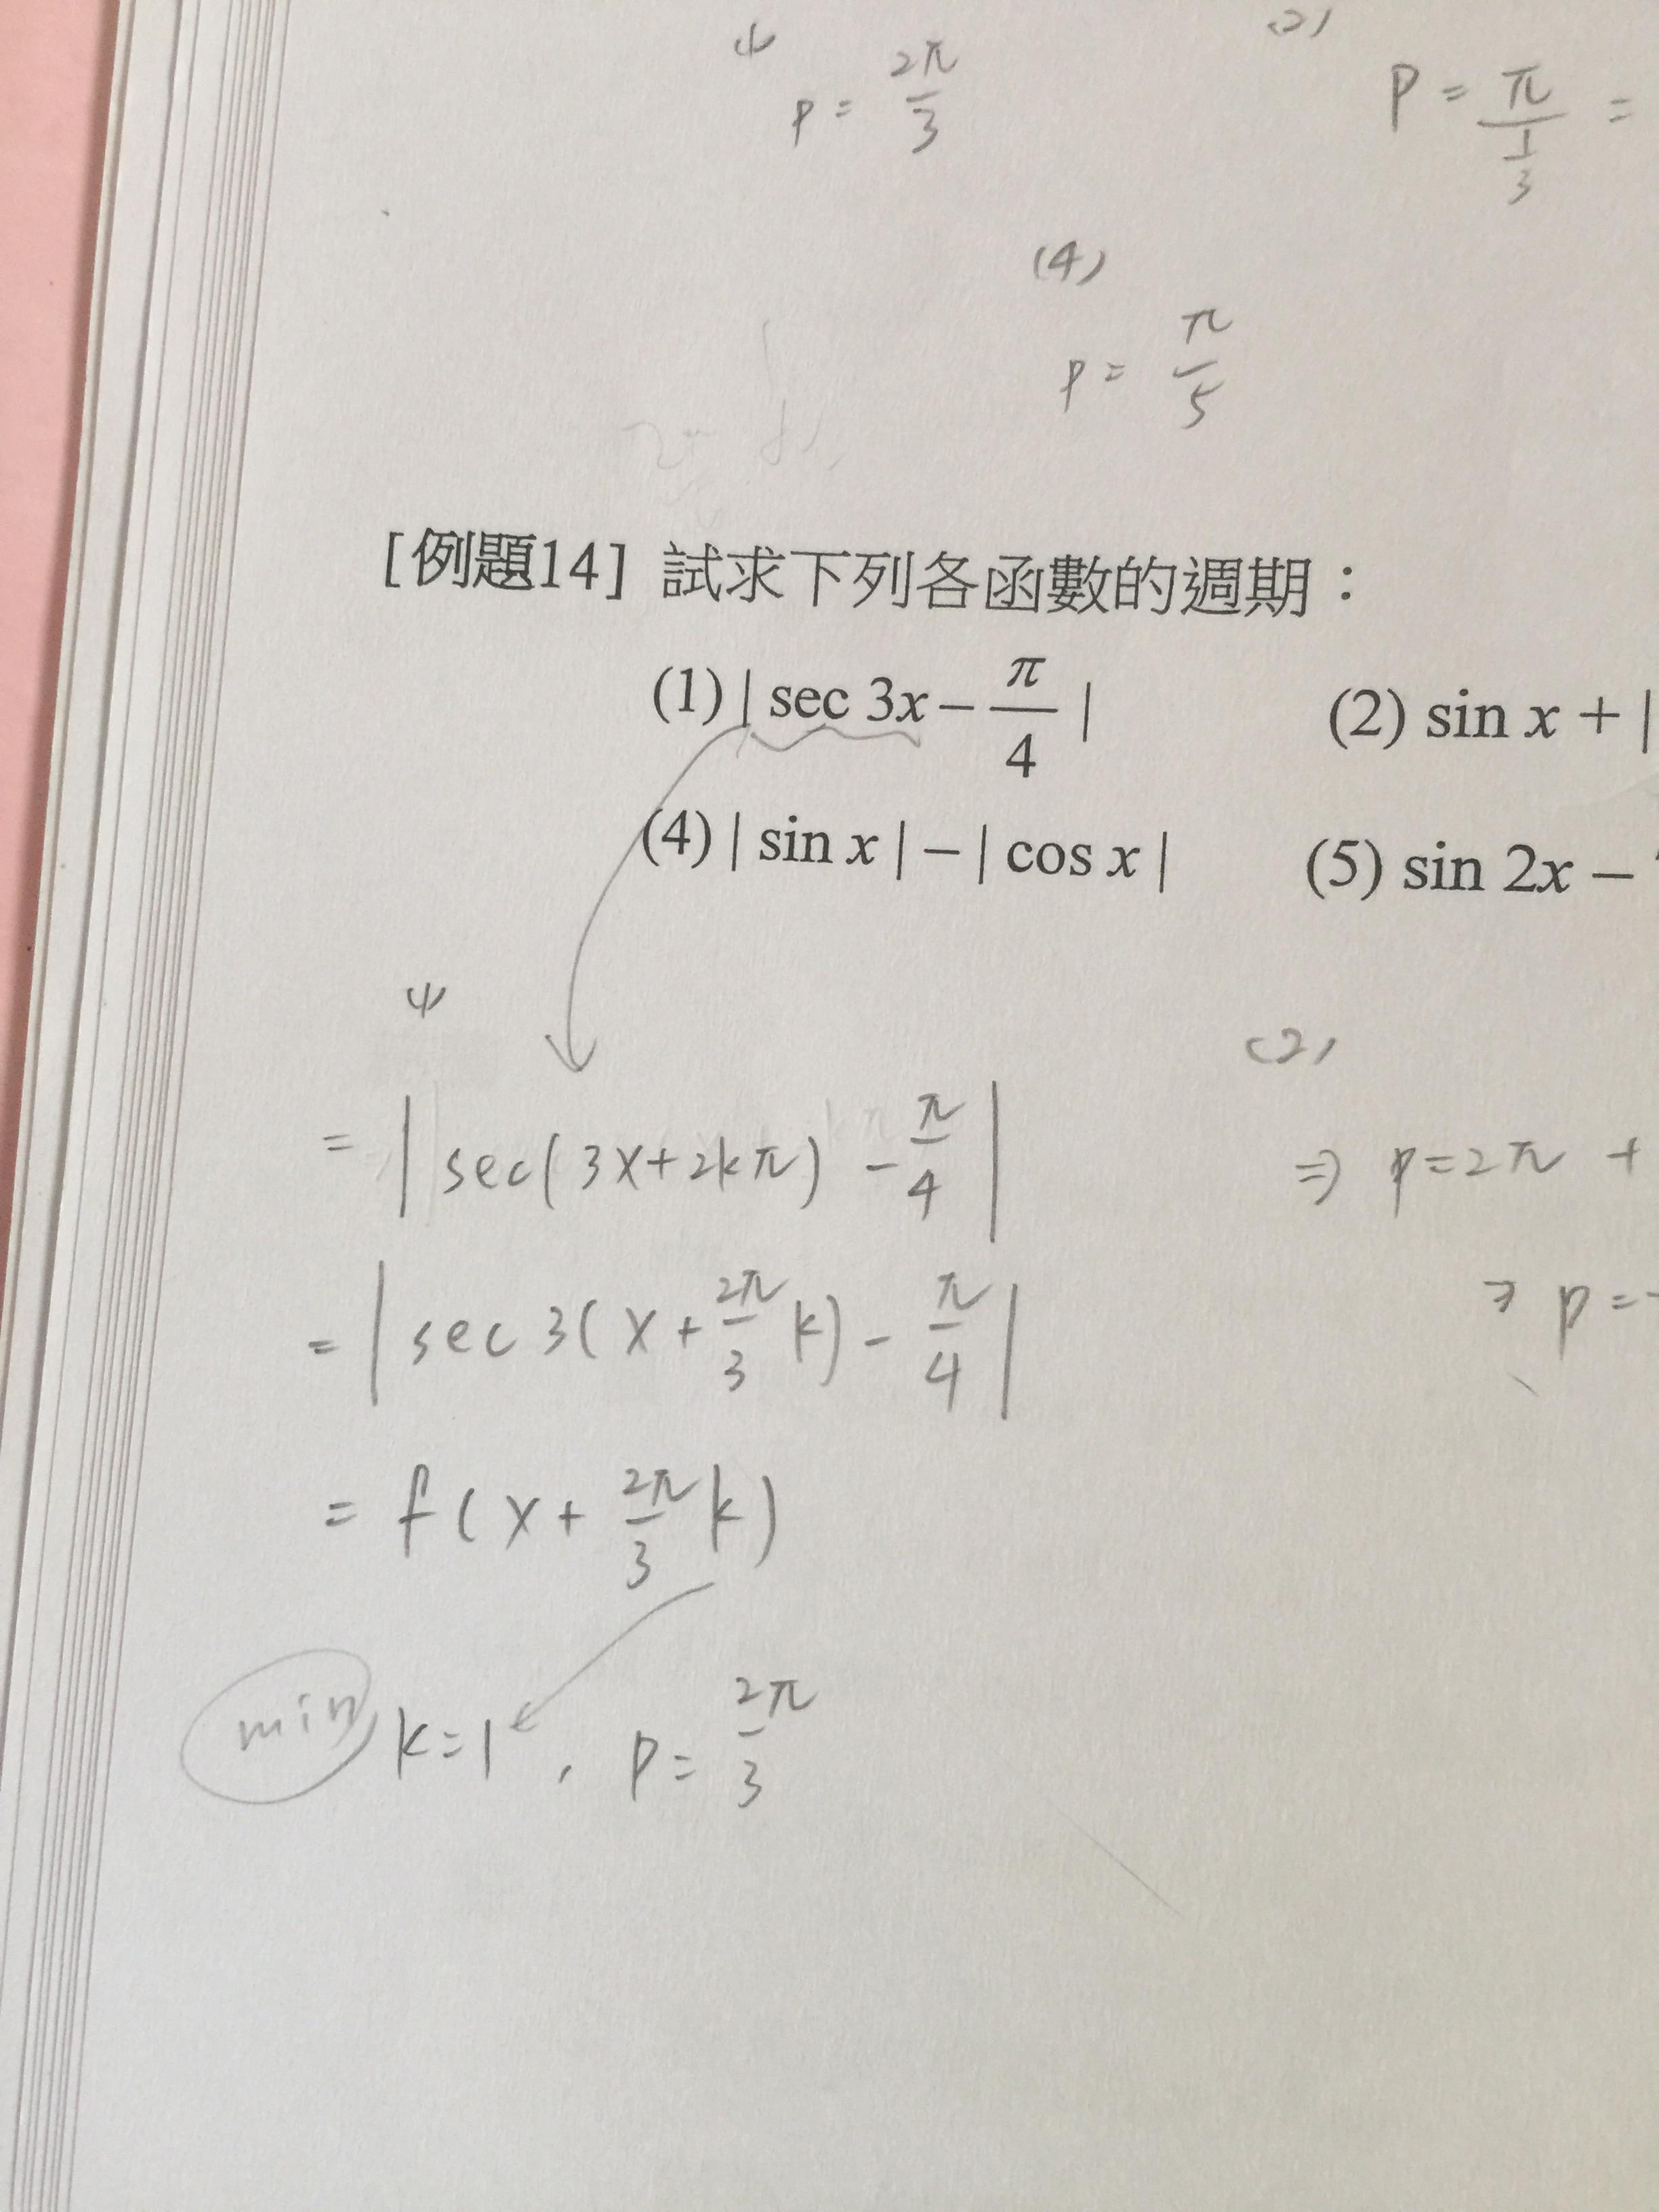 (1) (2)
p = 2π/3 P = π/(1/3) =
(4)
p = π/5
[例題14] 試求下列各函數的週期：
(1) | sec 3x − π/4 | (2) sin x + |
(4) | sin x | − | cos x | (5) sin 2x −
(1) (2)
= | sec(3x+2kπ) − π/4 | ⇒ p=2π +
= | sec 3(x + 2π/3 k) − π/4 | ⇒ p =
= f(x + 2π/3 k)
min k=1, p = 2π/3